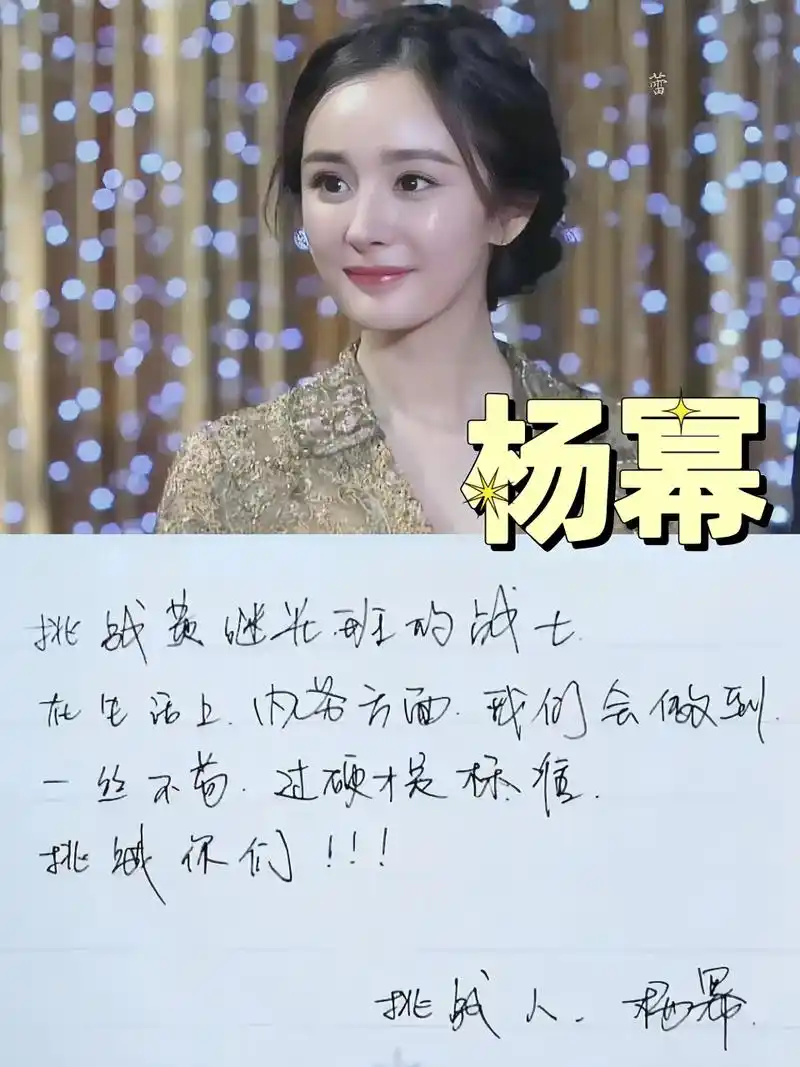 蕾
杨幂
挑战黄继光班的战士
在生活上.内务方面.我们会做到.
一丝不苟.过硬才是标准.
挑战你们!!!
挑战人.杨幂.